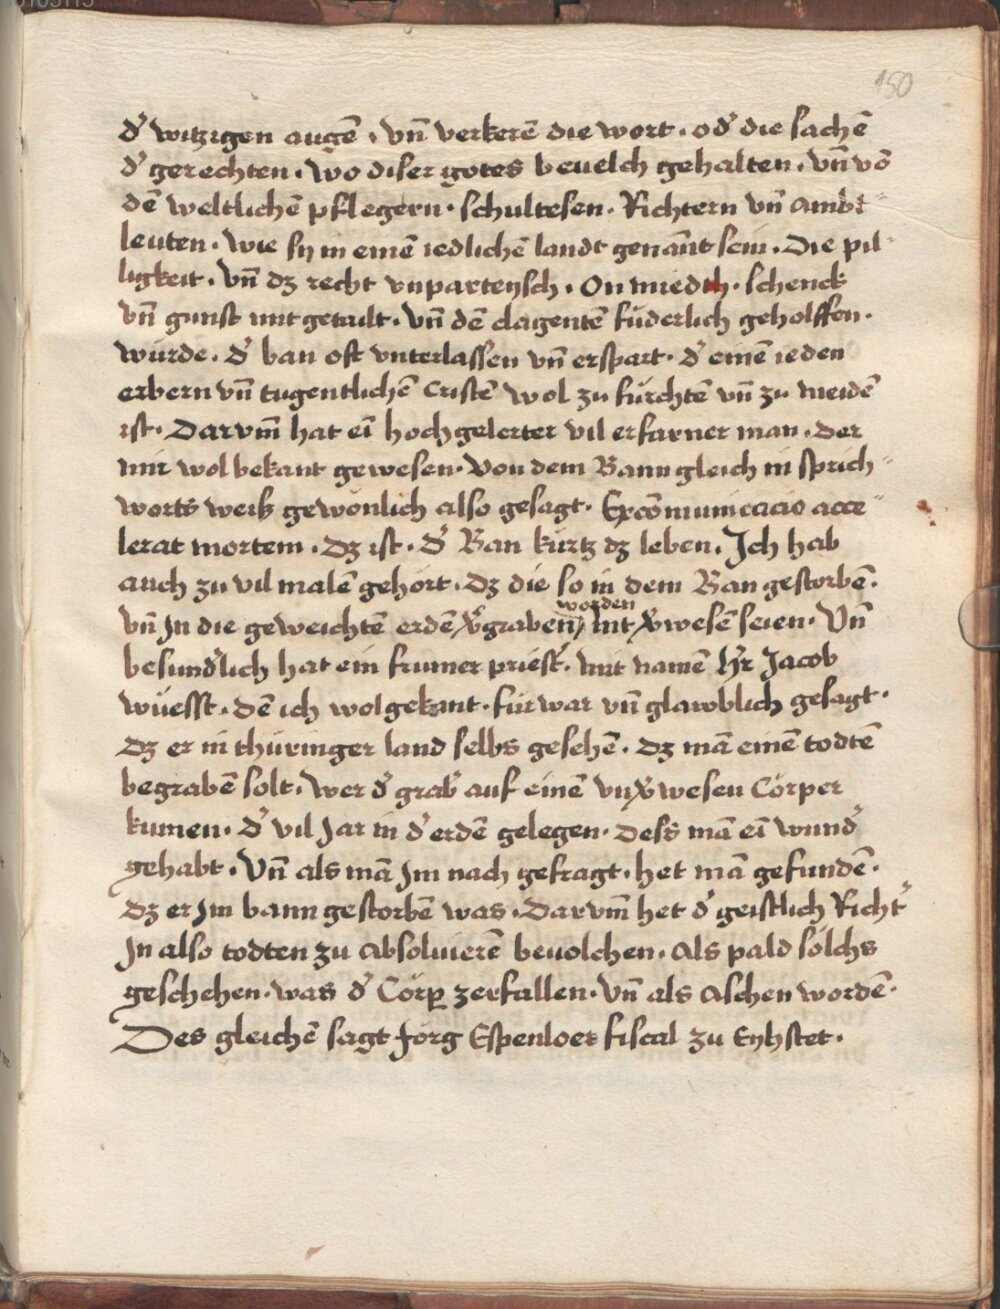 150
d᷑ witzigen augē · vn̄ verkerē die wort · od᷑ die sachē
d᷑ gerechten · wo diser gotes beuelch gehalten · vn̄ vō
dē weltlichē pflegern · schultesen · Richtern vn̄ ambt⸗
leuten · wie sy in einē iedlichē landt genan̄t sein · Die pil⸗
ligkeit · vn̄ dz recht vnparteysch · On miedth · schenck
vn̄ gunst mitgetailt · vn̄ dē clagentē füderlich geholffen ·
würde · d᷑ ban oft vnterlassen vn̄ erspart · d᷑ einē ieden
erbern vn̄ tugentlichē Cristē wol zu fürchtē vn̄ zu meidē
ist · Darvm̄ hat eī hochgelerter vil erfarner man · der
mir wol bekant gewesen · Von dem Bann gleich in sprich⸗
worts weiß gewonlich also gesagt · Excōmunicacio acce⸗
lerat mortem · Dz ist · d᷑ Ban kürtz dz leben · Ich hab
auch zu vil malē gehört · Dz die so in dem Ban gestorbē ·
worden
vn̄ Jn die geweichtē erdē v᷑graben, nit v᷑wesē seien · Vn̄
besund᷑lich hat ein frumer priest᷑ · mit namē h᷑r Jacob
wüesst · dē ich wol gekant · fürwar vn̄ glawblich gesagt ·
Dz er in thüringer land selbs gesehē · dz mā einē todtē
begrabē solt · wer d᷑ grab᷑ auf einē vnv᷑wesen Cörper
kumen · d᷑ vil Jar in d᷑ erdē gelegen · Dess mā eī wund᷑
gehabt · Vn̄ als mā Jm nach gefragt · het mā gefundē ·
Dz er Jm bann gestorbē was · Darvm̄ het d᷑ geistlich Richt᷑
Jn also todten zu absoluierē beuolchen · Als pald sölchs
geschehen · was d᷑ Cörꝑ zerfallen · Vn̄ als Aschen wordē ·
Des gleichē sagt Jörg Espenloer fiscal zu Eyhstet ·